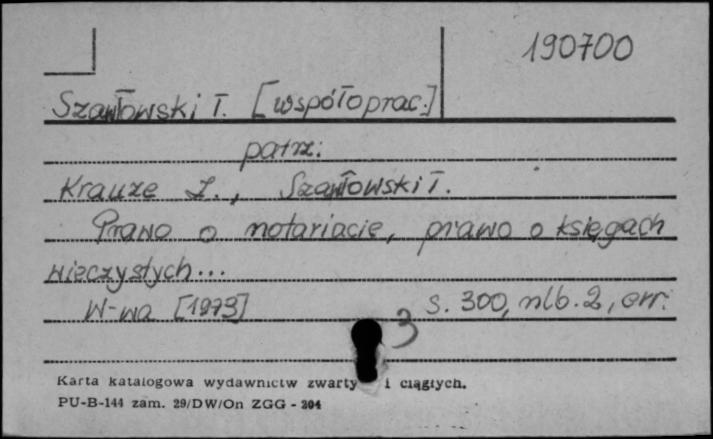 190700
Szawłowski T. [współoprac.]
patrz:
Krauze L., Szawłowski T.
Prawo o notariacie, prawo o księgach
wieczystych...
W-wa [1973]
3 s. 300, nlb. 2, err.
Karta katalogowa wydawnictw zwarty i ciągłych.
PU-B-144 zam. 29/DW/On ZGG - 204